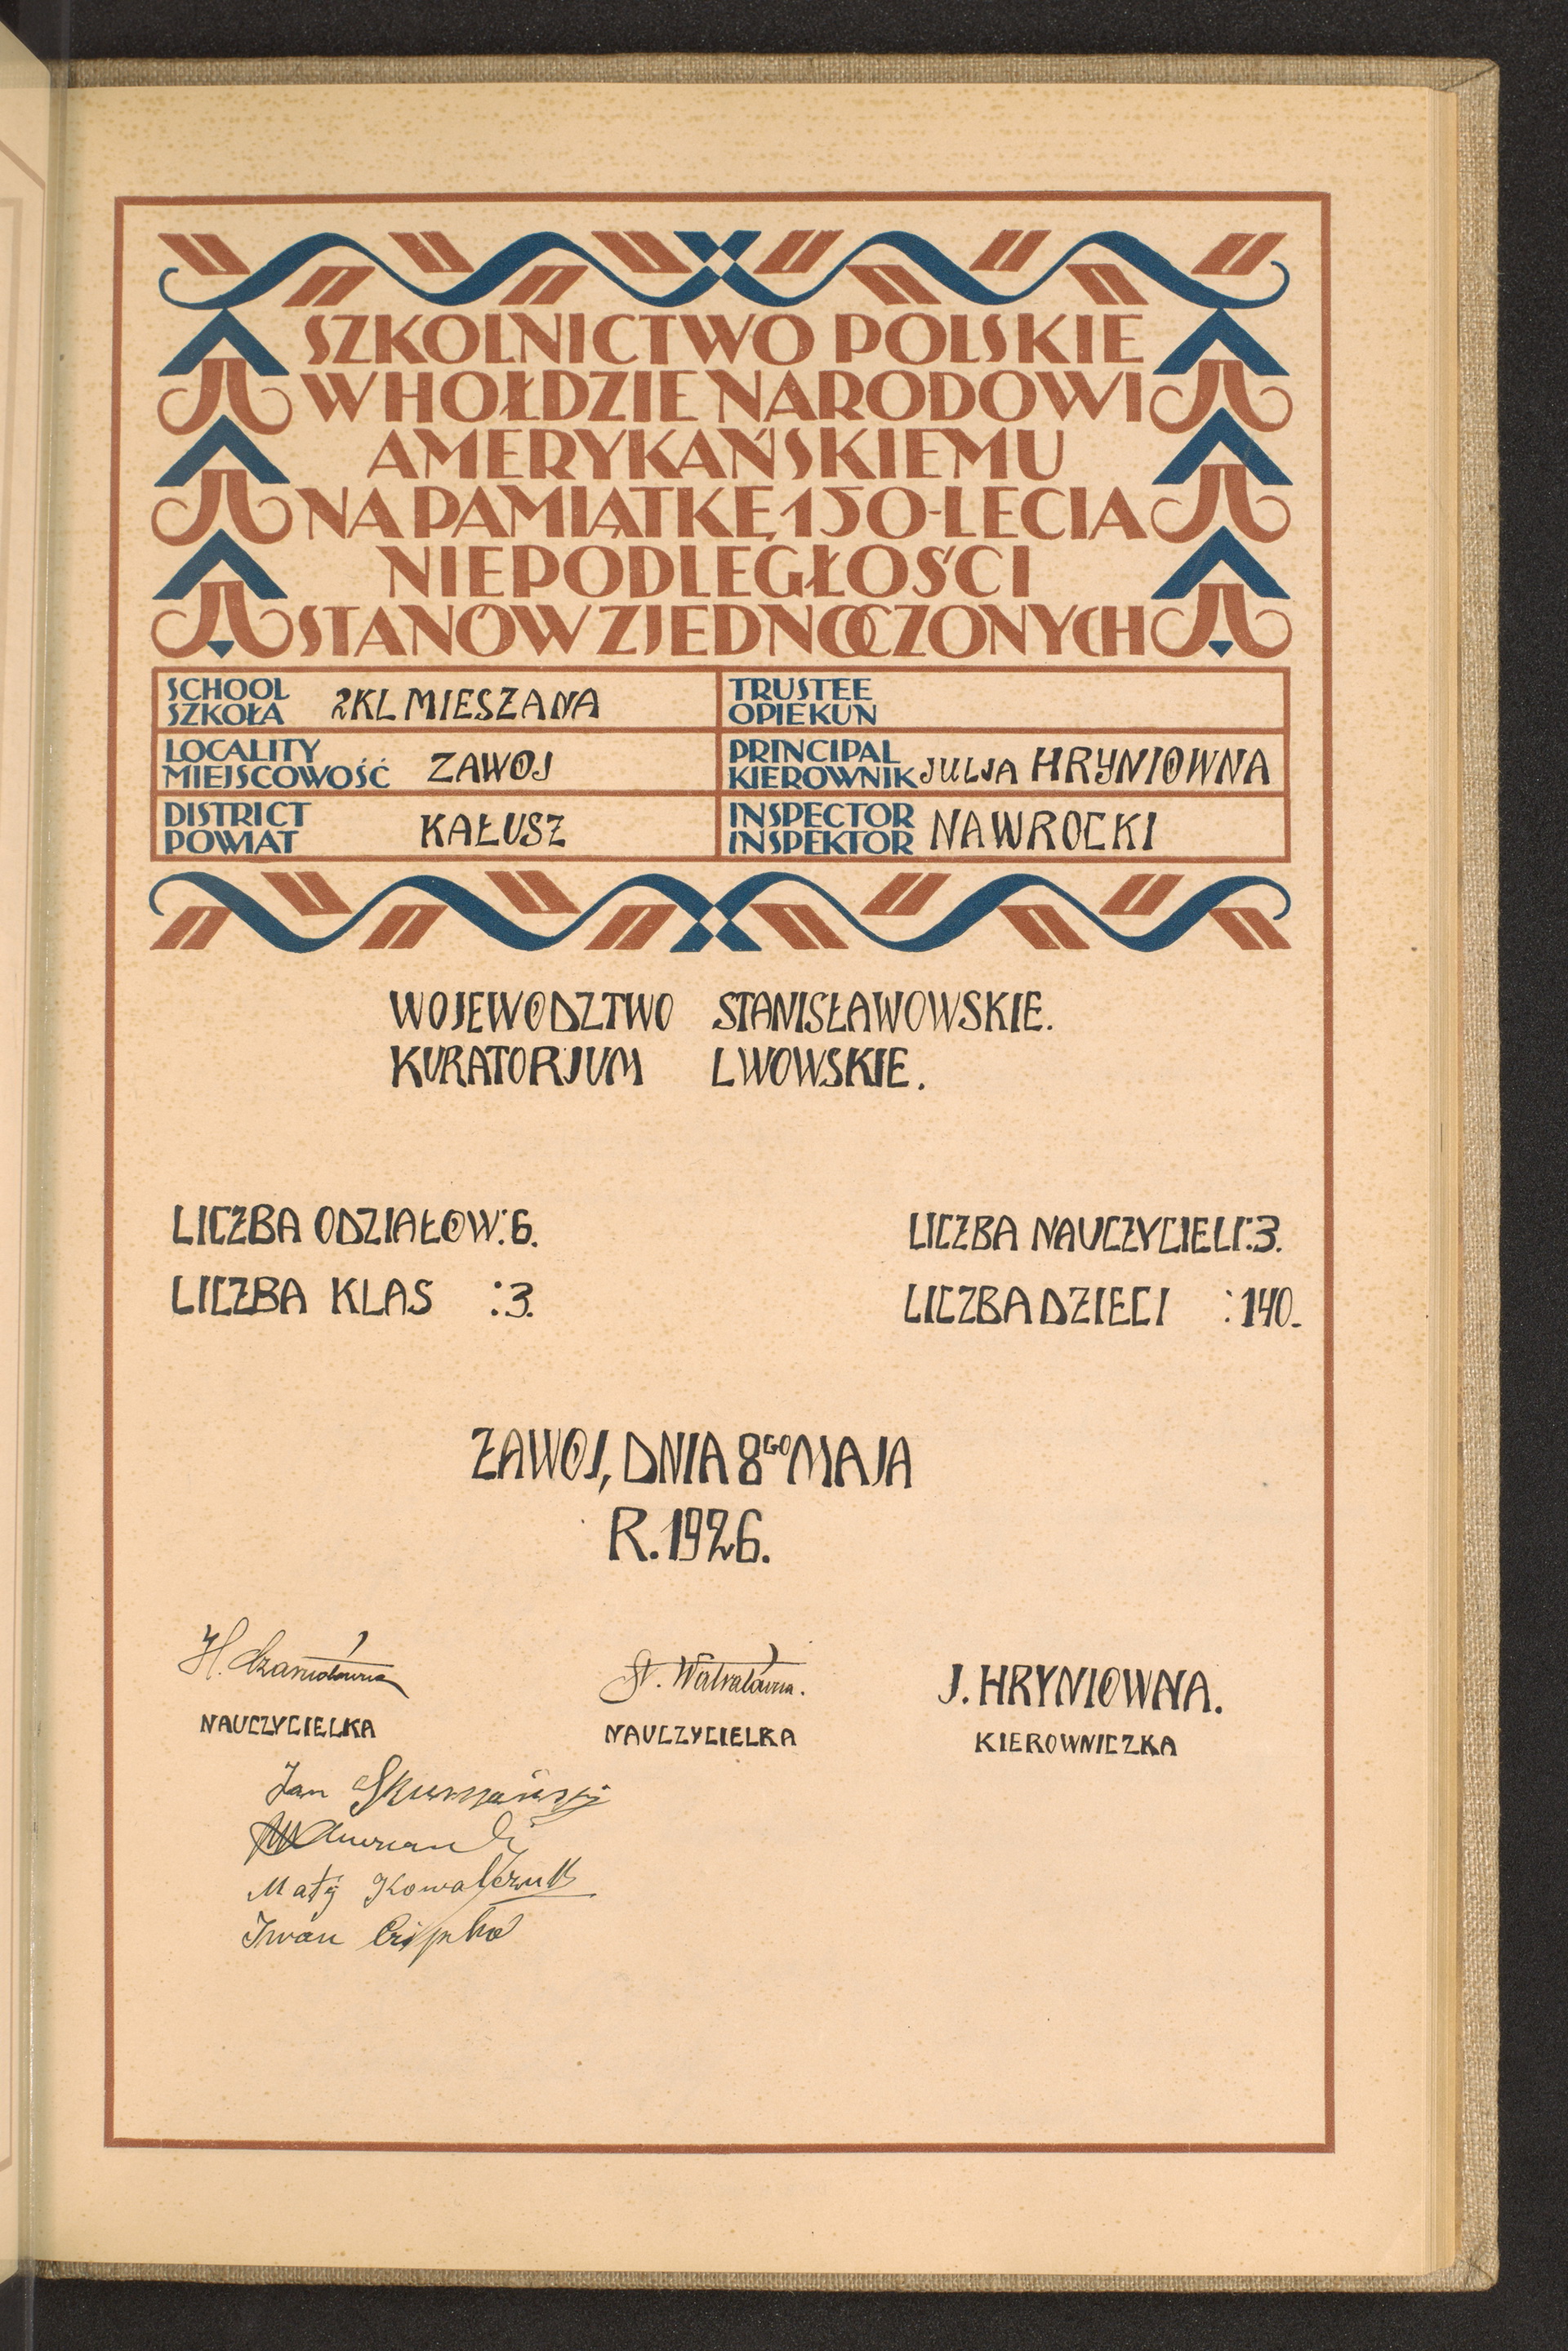 SZKOLNICTWO POLSKIE
W HOŁDZIE NARODOWI
AMERYKAŃSKIEMU
NA PAMIĄTKĘ 150-LECIA
NIEPODLEGŁOŚCI
STANÓW ZJEDNOCZONYCH
SCHOOL
SZKOŁA 2KL MIESZANA
TRUSTEE
OPIEKUN
LOCALITY
MIEJSCOWOŚĆ ZAWOJ
PRINCIPAL
KIEROWNIK JULJA HRYNIOWNA
DISTRICT
POWIAT KAŁUSZ
INSPECTOR
INSPEKTOR NAWROCKI
WOJEWODZTWO STANISŁAWOWSKIE.
KURATORJUM LWOWSKIE.
LICZBA ODZIAŁOW:6.
LICZBA NAUCZYCIELI:3.
LICZBA KLAS :3.
LICZBA DZIECI :140.
ZAWOJ, DNIA 8GO MAJA
R. 1926.
H.
St.
J. HRYNIOWNA.
NAUCZYCIELKA
NAUCZYCIELKA
KIEROWNICZKA
Jan
Kowalczuk
Iwan